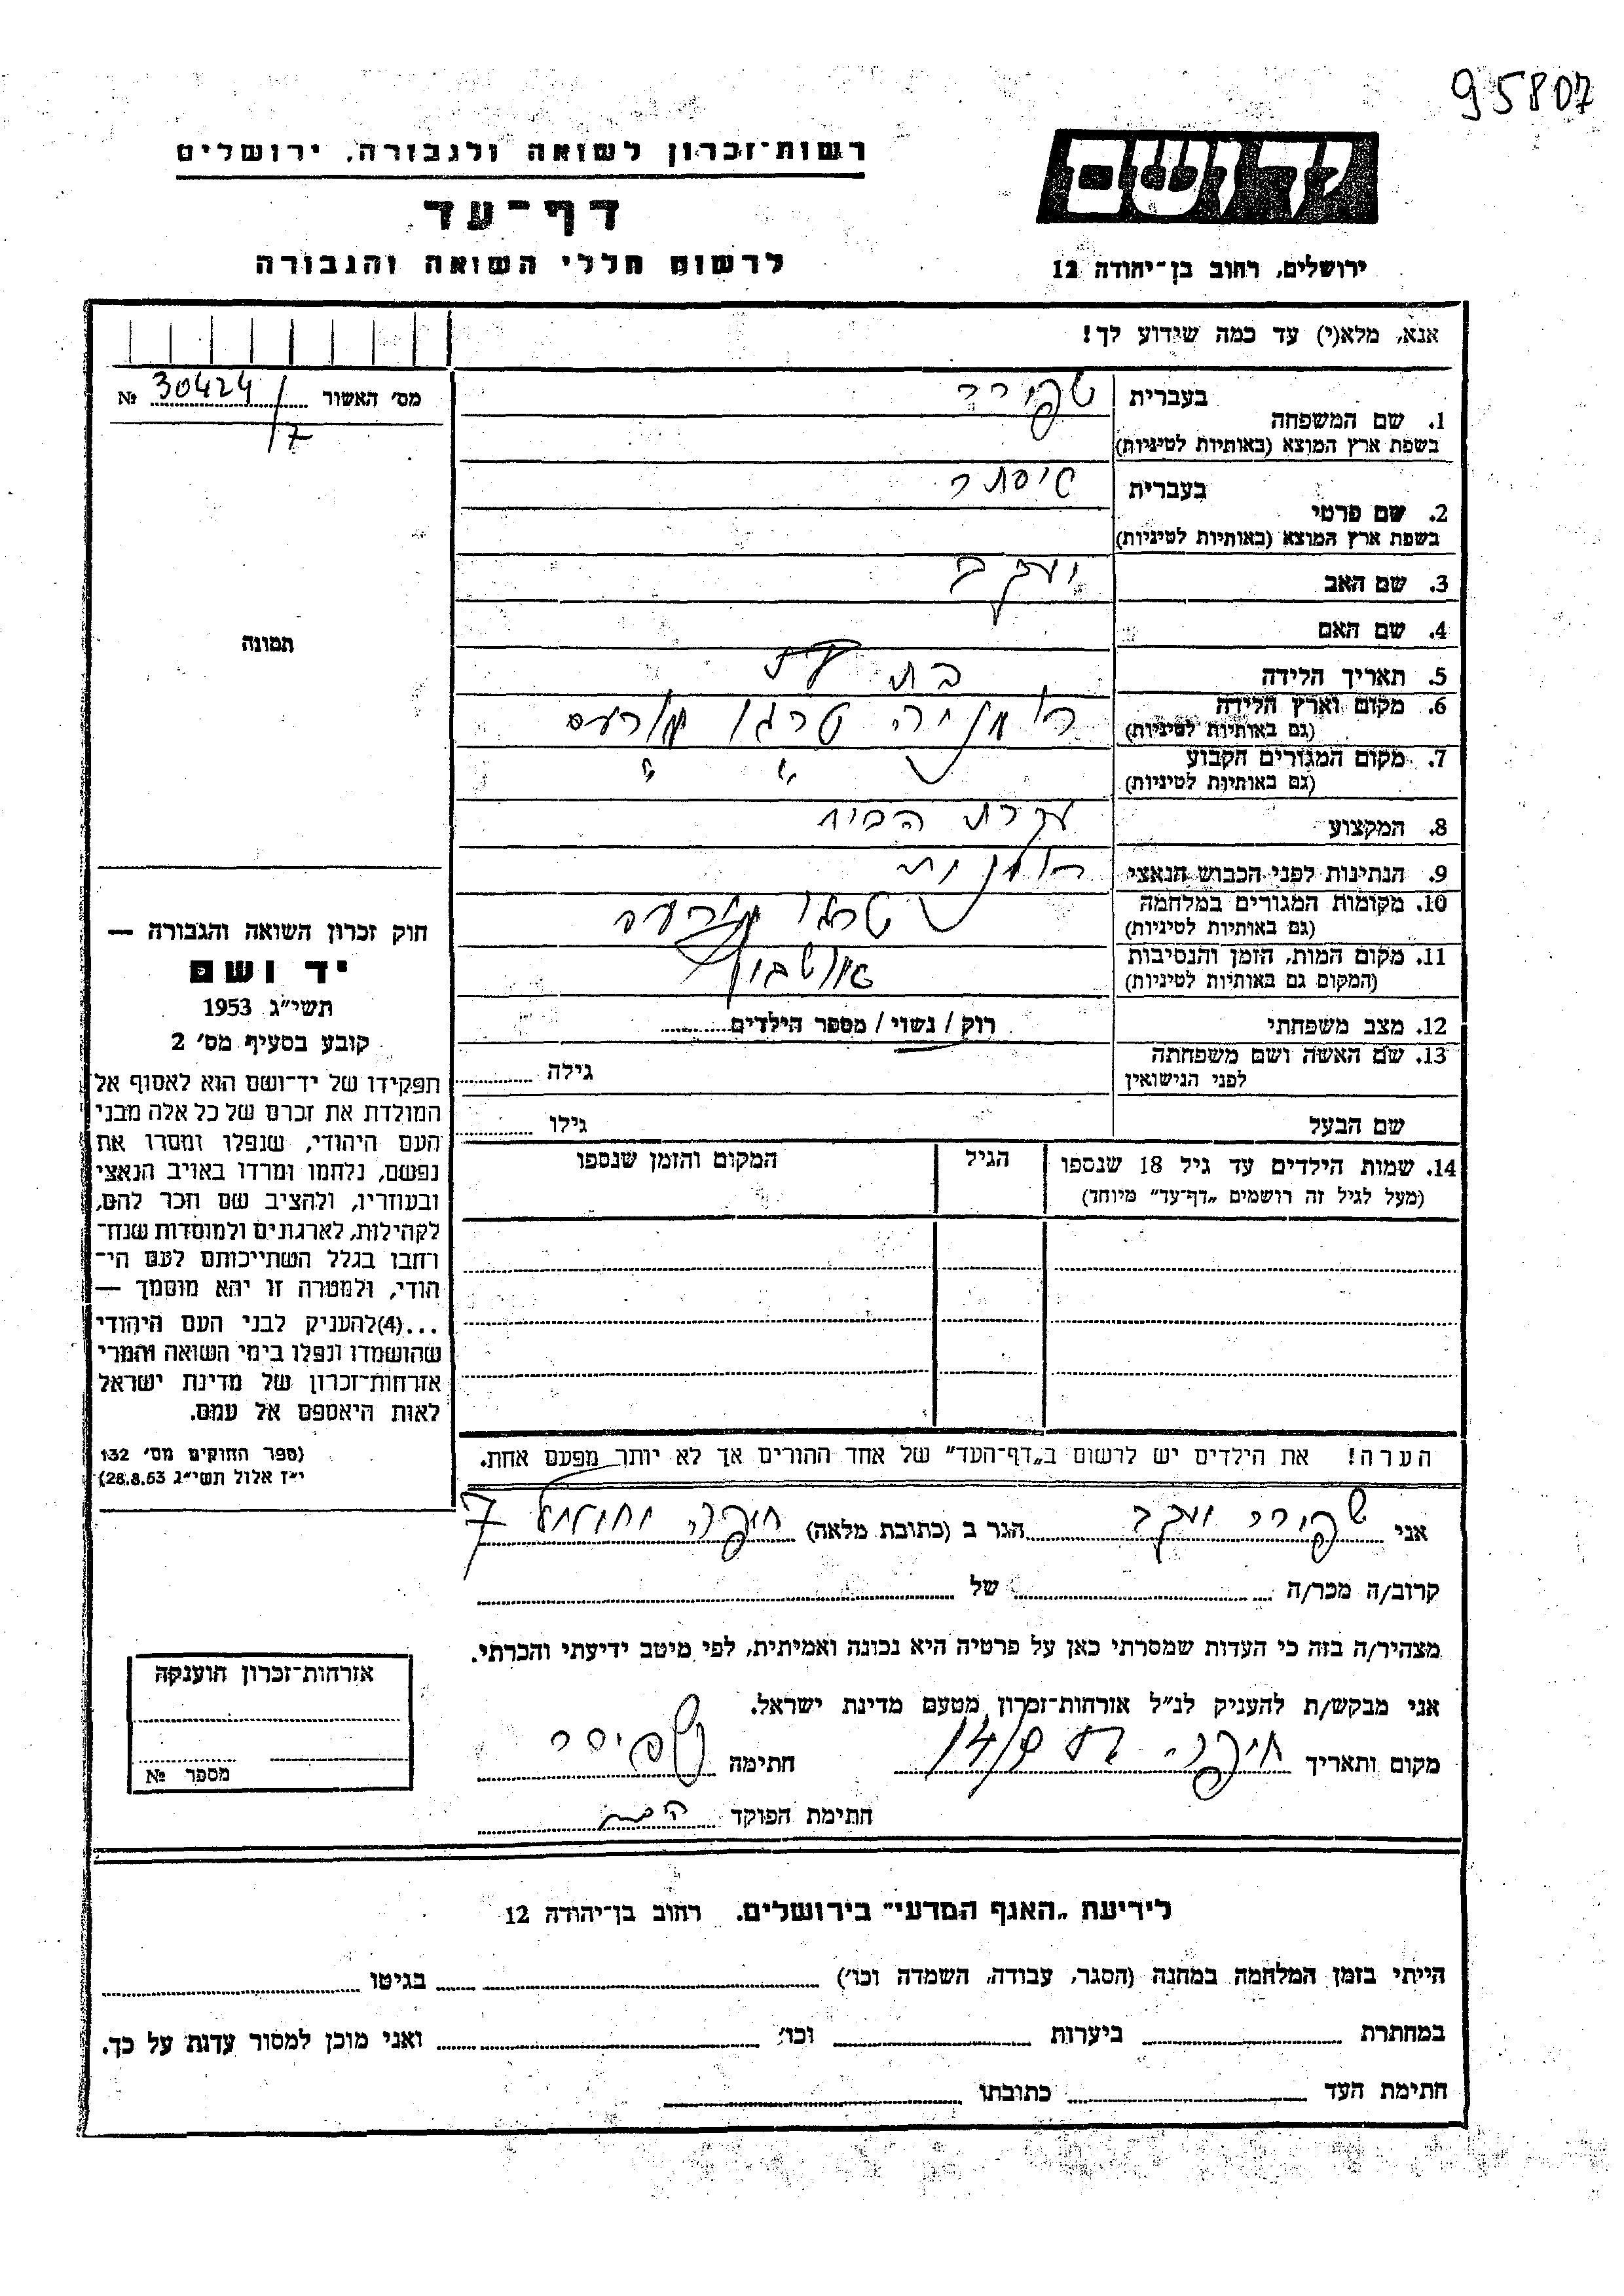 95807
יד ושם
רשות־זכרון לשואה ולגבורה, ירושלים
דף־עד
ירושלים, רחוב בן־יהודה 12
לרשום חללי השואה והגבורה
אנא, מלא(י) עד כמה שידוע לך!
מס׳ האשור № 30424/7
1. שם המשפחה
בעברית
בשפת ארץ המוצא (באותיות לטיניות)
2. שם פרטי
בעברית
בשפת ארץ המוצא (באותיות לטיניות)
3. שם האב יעקב
4. שם האם
5. תאריך הלידה בת
6. מקום וארץ הלידה רומניה טרגו מורעש
(גם באותיות לטיניות)
7. מקום המגורים הקבוע " " "
(גם באותיות לטיניות)
8. המקצוע עקרת הבית
9. הנתינות לפני הכבוש הנאצי רומנית
10. מקומות המגורים במלחמה טרגו
(גם באותיות לטיניות)
11. מקום המות, הזמן והנסיבות אושביץ
(המקום גם באותיות לטיניות)
12. מצב משפחתי רוק / נשוי / מספר הילדים
13. שם האשה ושם משפחתה
לפני הנישואין
גילה
שם הבעל
גילו
14. שמות הילדים עד גיל 18 שנספו
(מעל לגיל זה רושמים „דף־עד״ מיוחד)
הגיל
המקום והזמן שנספו
הערה! את הילדים יש לרשום ב„דף־העד״ של אחד ההורים אך לא יותר מפעם אחת.
תמונה
חוק זכרון השואה והגבורה —
יד ושם
תשי״ג 1953
קובע בסעיף מס׳ 2
תפקידו של יד־ושם הוא לאסוף אל
המולדת את זכרם של כל אלה מבני
העם היהודי, שנפלו ומסרו את
נפשם, נלחמו ומרדו באויב הנאצי
ובעוזריו, ולהציב שם וזכר להם,
לקהילות, לארגונים ולמוסדות שנח־
רחבו בגלל השתייכותם לעם הי־
הודי, ולמטרה זו יהא מוסמך —
...(4)להעניק לבני העם היהודי
שהושמדו ונפלו בימי השואה והמרי
אזרחות־זכרון של מדינת ישראל
לאות היאספם אל עמם.
(ספר החוקים מס׳ 132
י״ז אלול תשי״ג 28.8.53)
אני יעקב הגר ב (כתובת מלאה) חיפה 7
קרוב/ה מכר/ה של
מצהיר/ה בזה כי העדות שמסרתי כאן על פרטיה היא נכונה ואמיתית, לפי מיטב ידיעתי והכרתי.
אני מבקש/ת להעניק לנ״ל אזרחות־זכרון מטעם מדינת ישראל.
מקום ותאריך חיפה 14/9 חתימה
חתימת הפוקד
אזרחות־זכרון הוענקה
מספר №
לידיעת „האגף המדעי״ בירושלים. רחוב בן־יהודה 12
הייתי בזמן המלחמה במחנה (הסגר, עבודה, השמדה וכו׳) בגיטו
במחתרת ביערות וכו׳ ואני מוכן למסור עדות על כך.
חתימת העד כתובתו